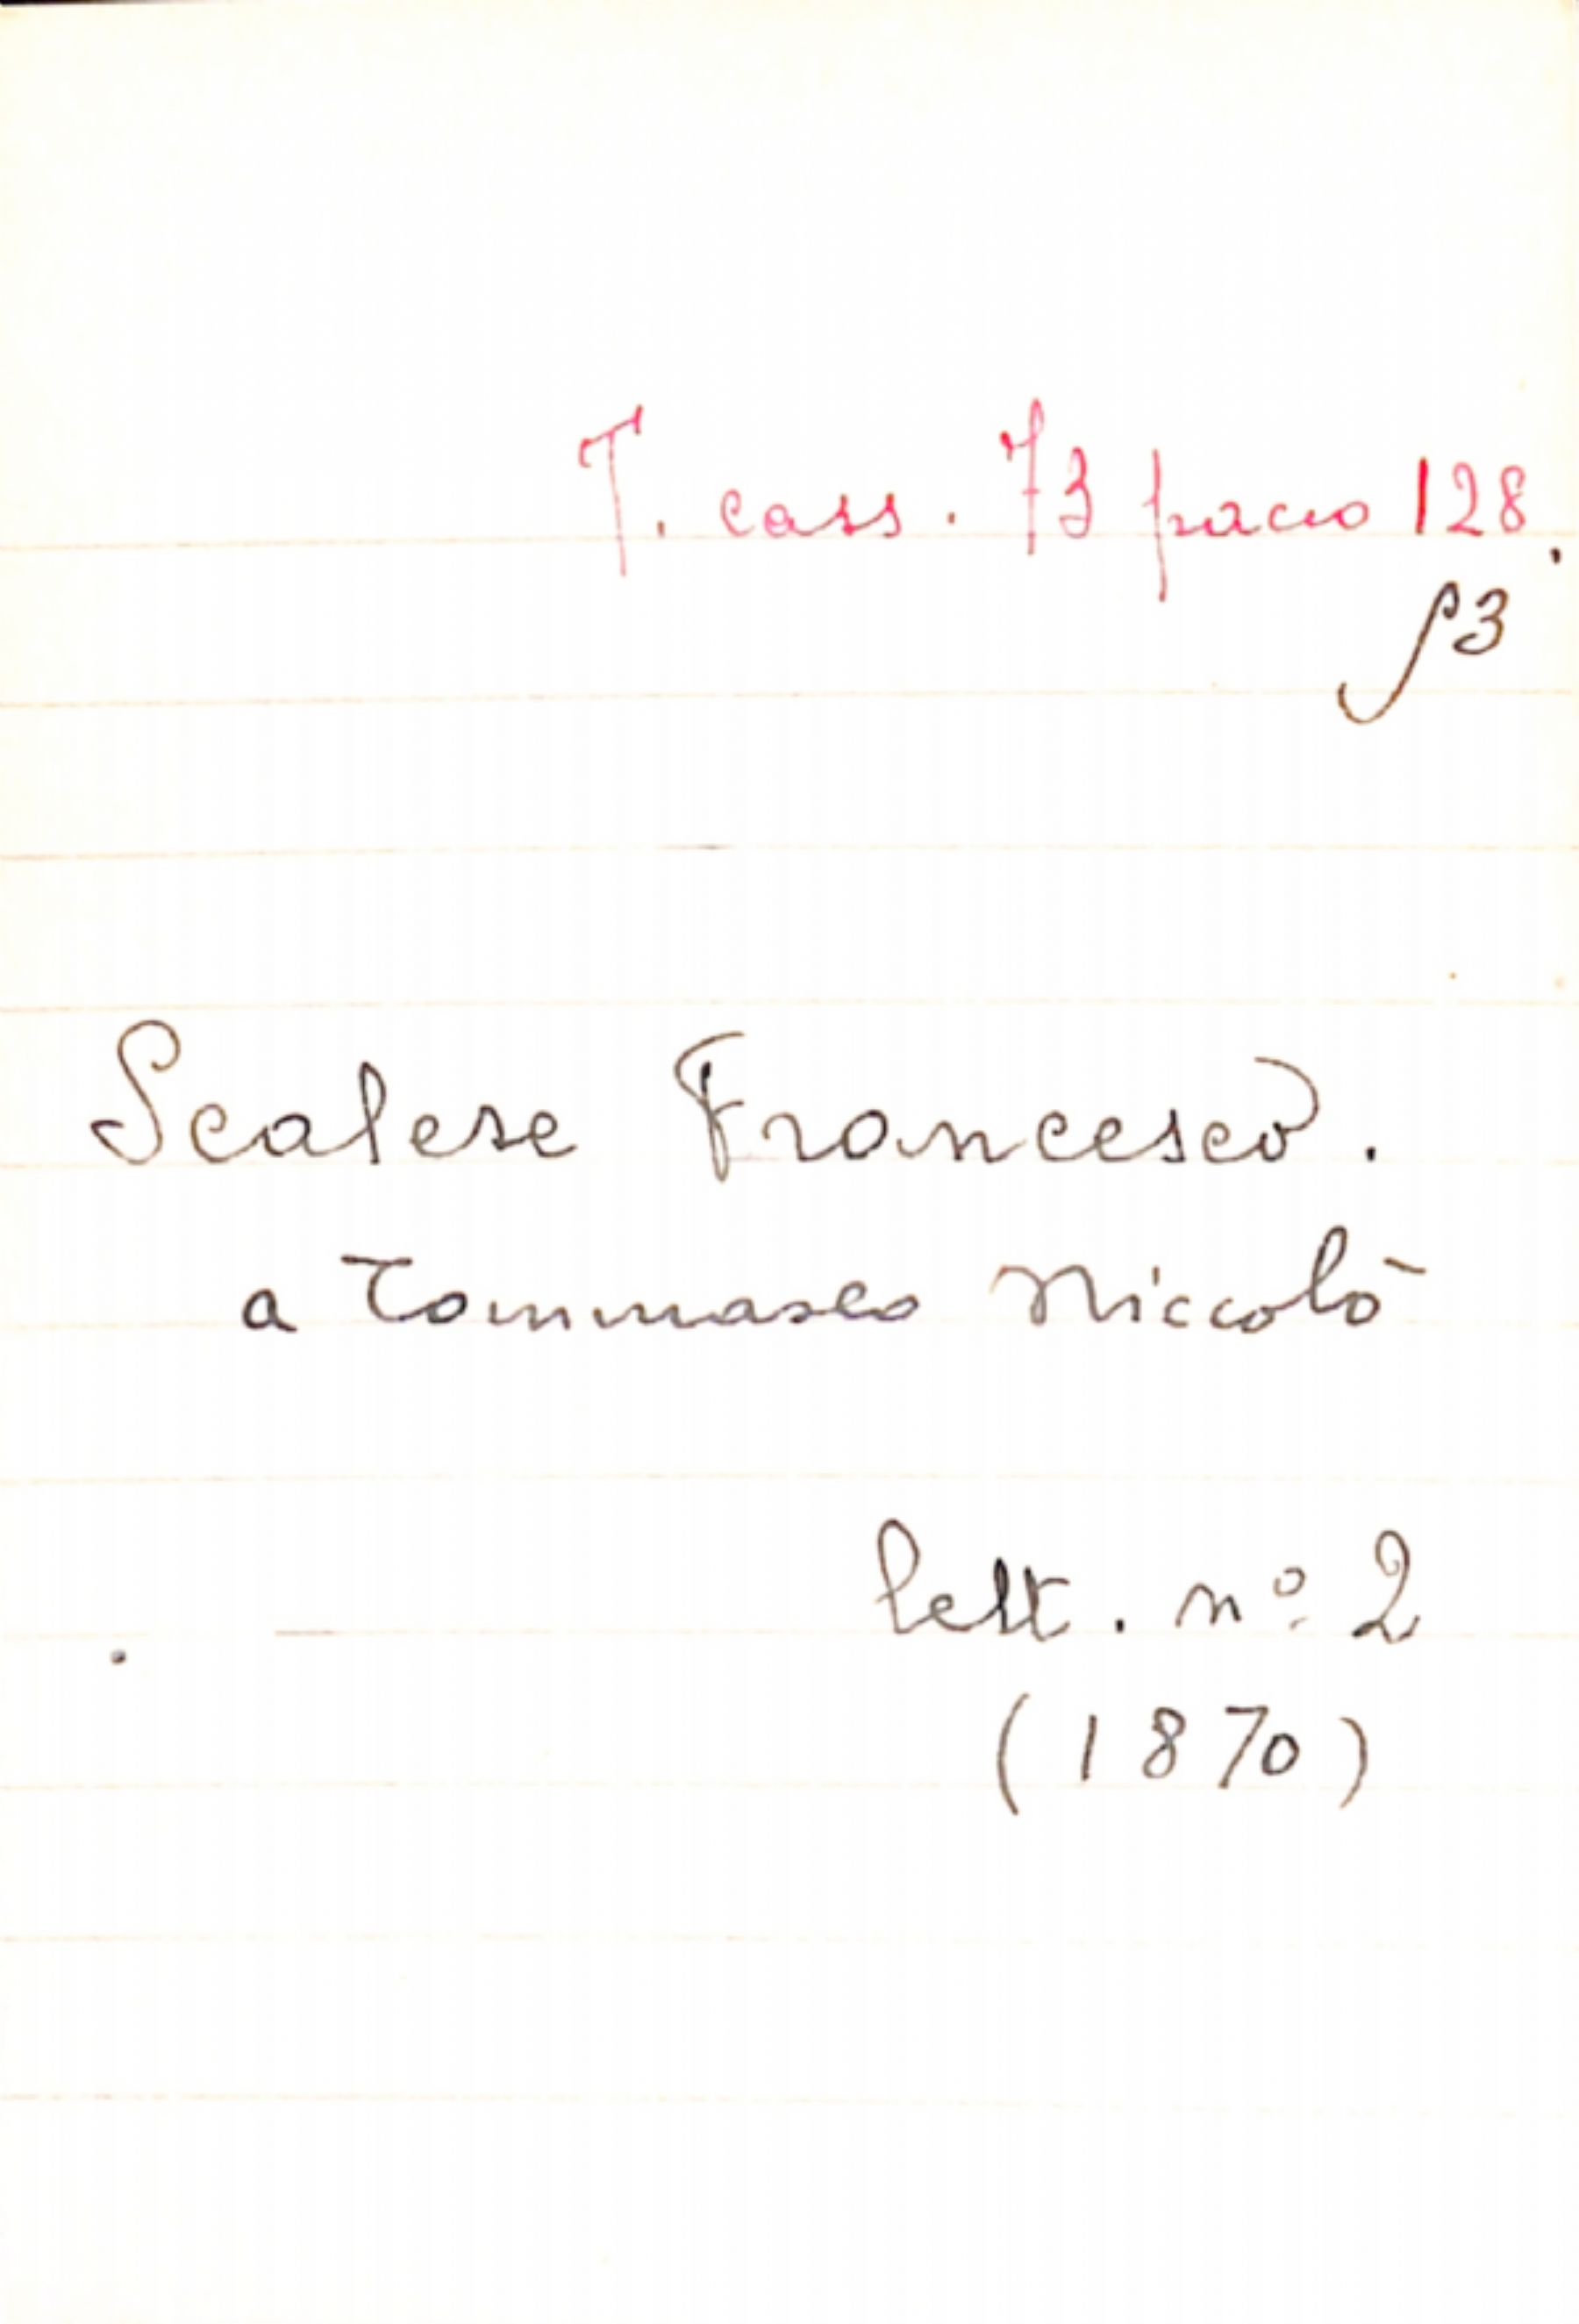 T. cass. 73 pacco 128.
13
Scalese Francesco.
a Tommaseo Niccolò
lett. nº 2
(1870)